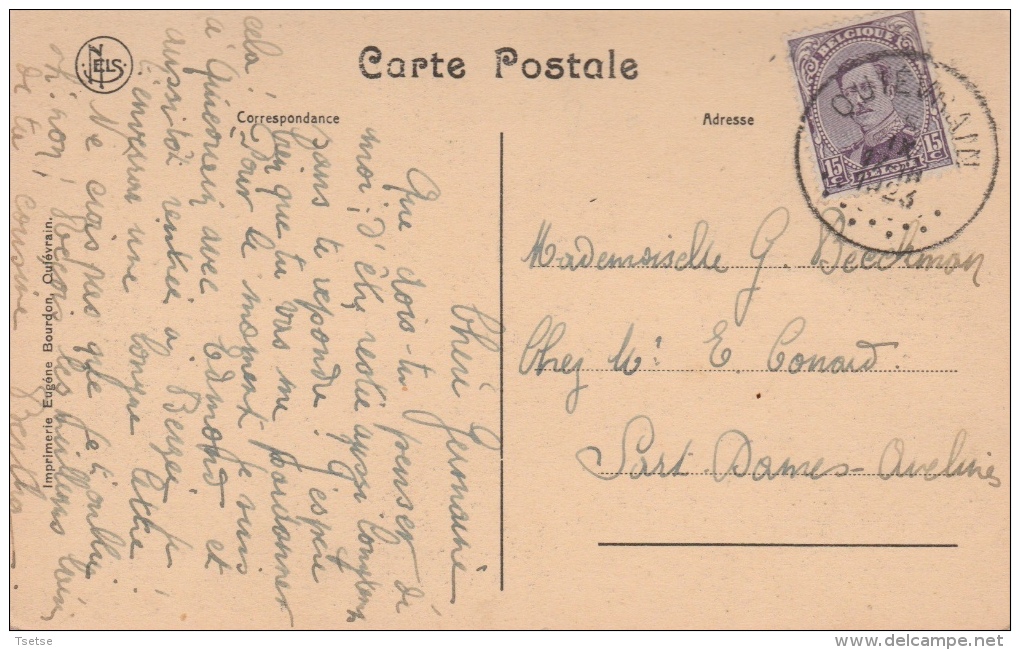 Carte Postale
Correspondance
Adresse
NELS
BELGIQUE
15 C
15 C
BELGIE
QUIEVRAIN
1923
Mademoiselle G. Beeckman
Chez Mr E. Conard
Sart-Dames-Avelines
Chère Germaine
Que dois-tu penser de
moi, d'être restée aussi longtemps
sans te répondre. J'espère
bien que tu vas me pardonner
Pour le moment je suis
à Quiévrain avec Edmond et
aussitôt rentrée à Berzée je
t'enverrai une longue lettre
Ne crois pas que je t'oublie
oh! non! Reçois les meilleurs
de ta cousine
cela!
Imprimerie Eugène Bourdon, Quiévrain.
Tsetse
delcampe.net